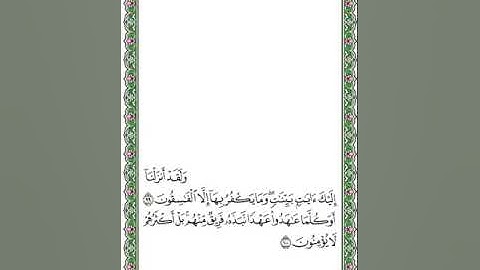 وَلَقَدۡ أَنزَلۡنَآ
إِلَيۡكَ ءَايَٰتِۭ بَيِّنَٰتٖۖ وَمَا يَكۡفُرُ بِهَآ إِلَّا ٱلۡفَٰسِقُونَ ٩٩
أَوَكُلَّمَا عَٰهَدُواْ عَهۡدٗا نَّبَذَهُۥ فَرِيقٞ مِّنۡهُمۚ بَلۡ أَكۡثَرُهُمۡ
لَا يُؤۡمِنُونَ ١٠٠